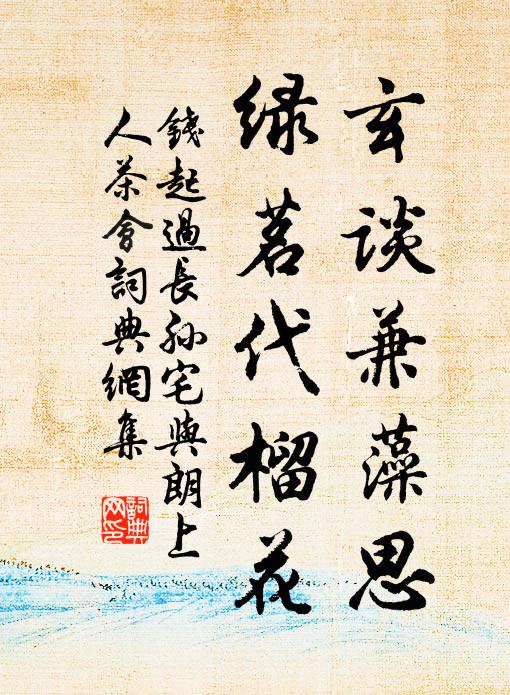 玄談兼藻思
綠茗代榴花
錢起過長孫宅與朗上
人茶會詞典網集
詞典
网印